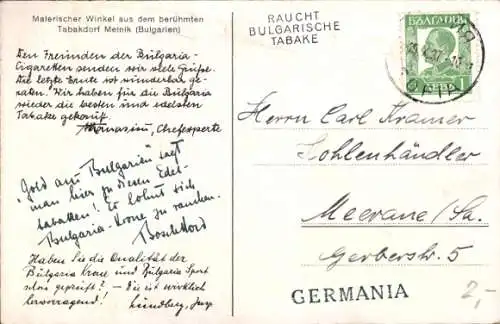 Malerischer Winkel aus dem berühmten
Tabakdorf Melnik (Bulgarien)
Den Freunden der Bulgaria-
Cigaretten senden wir viele Grüße.
Die letzte Ernte ist wunderbar ge-
raten. Wir haben für die Bulgaria
wieder die besten und edelsten
Tabake gekauft.
Athanasiu, Chefexperte
"Gold aus Bulgarien" sagt
man hier zu diesen Edel-
tabaken! Es lohnt sich
Bulgaria-Krone zu rauchen.
Haben Sie die Qualität der
Bulgaria Krone und Bulgaria Sport
schon geprüft? – die ist wirklich
hervorragend! Lundberg,
RAUCHT
BULGARISCHE
TABAKE
БЪЛГАРИЯ
1
Herrn Carl Kramer
Kohlenhändler
Meerane/Sa.
Gerberstr. 5
GERMANIA
2,-